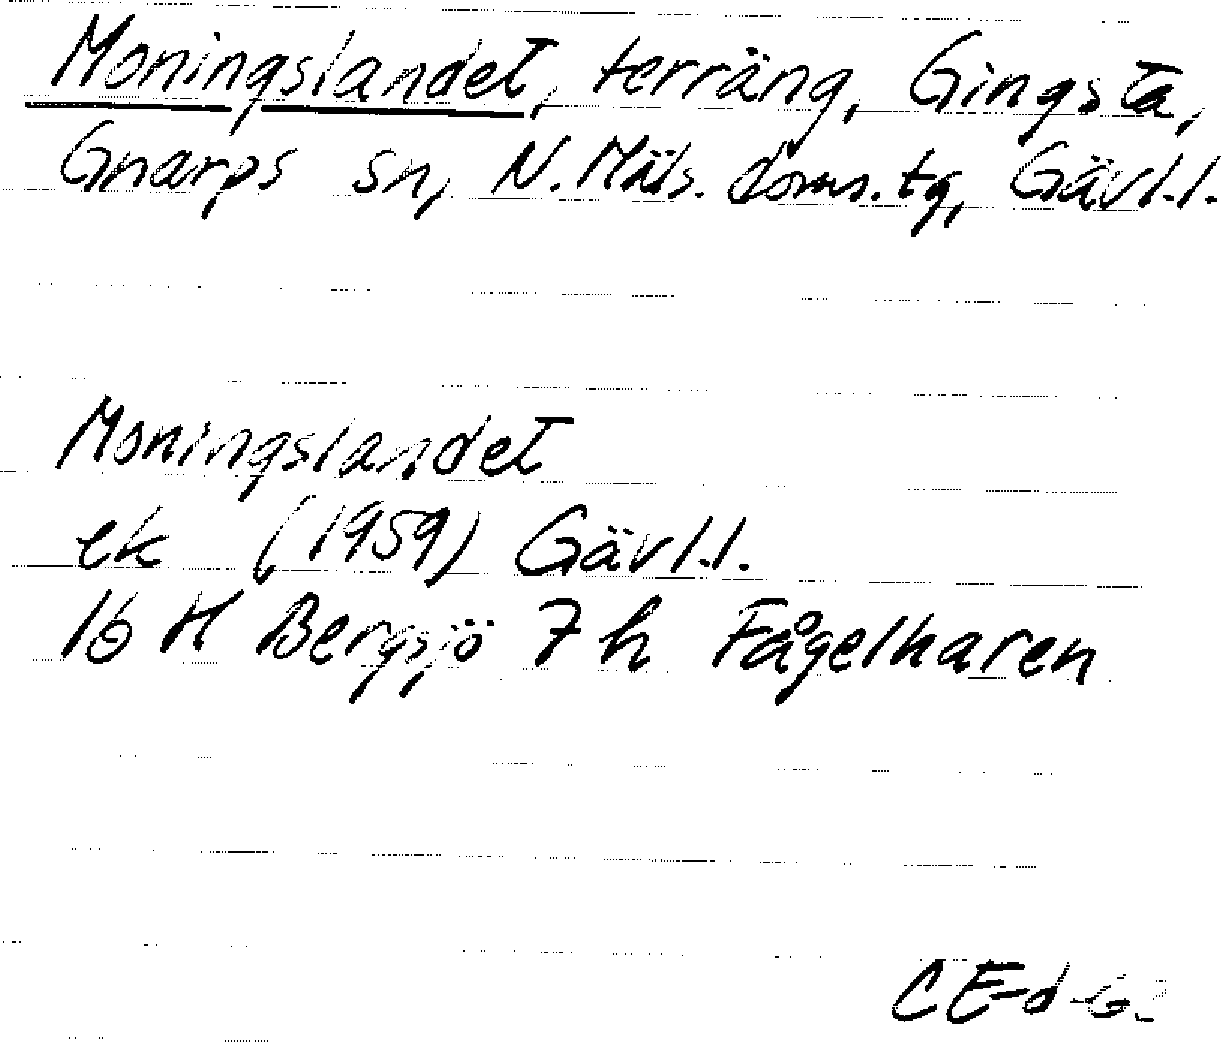 Moningslandet, terräng, Gingsta,
Gnarps sn, N. Häls. doms. tg, Gävl.l.
Moningslandet
ek (1959) Gävl.l.
16 H Bergsjö 7 h Fågelharen